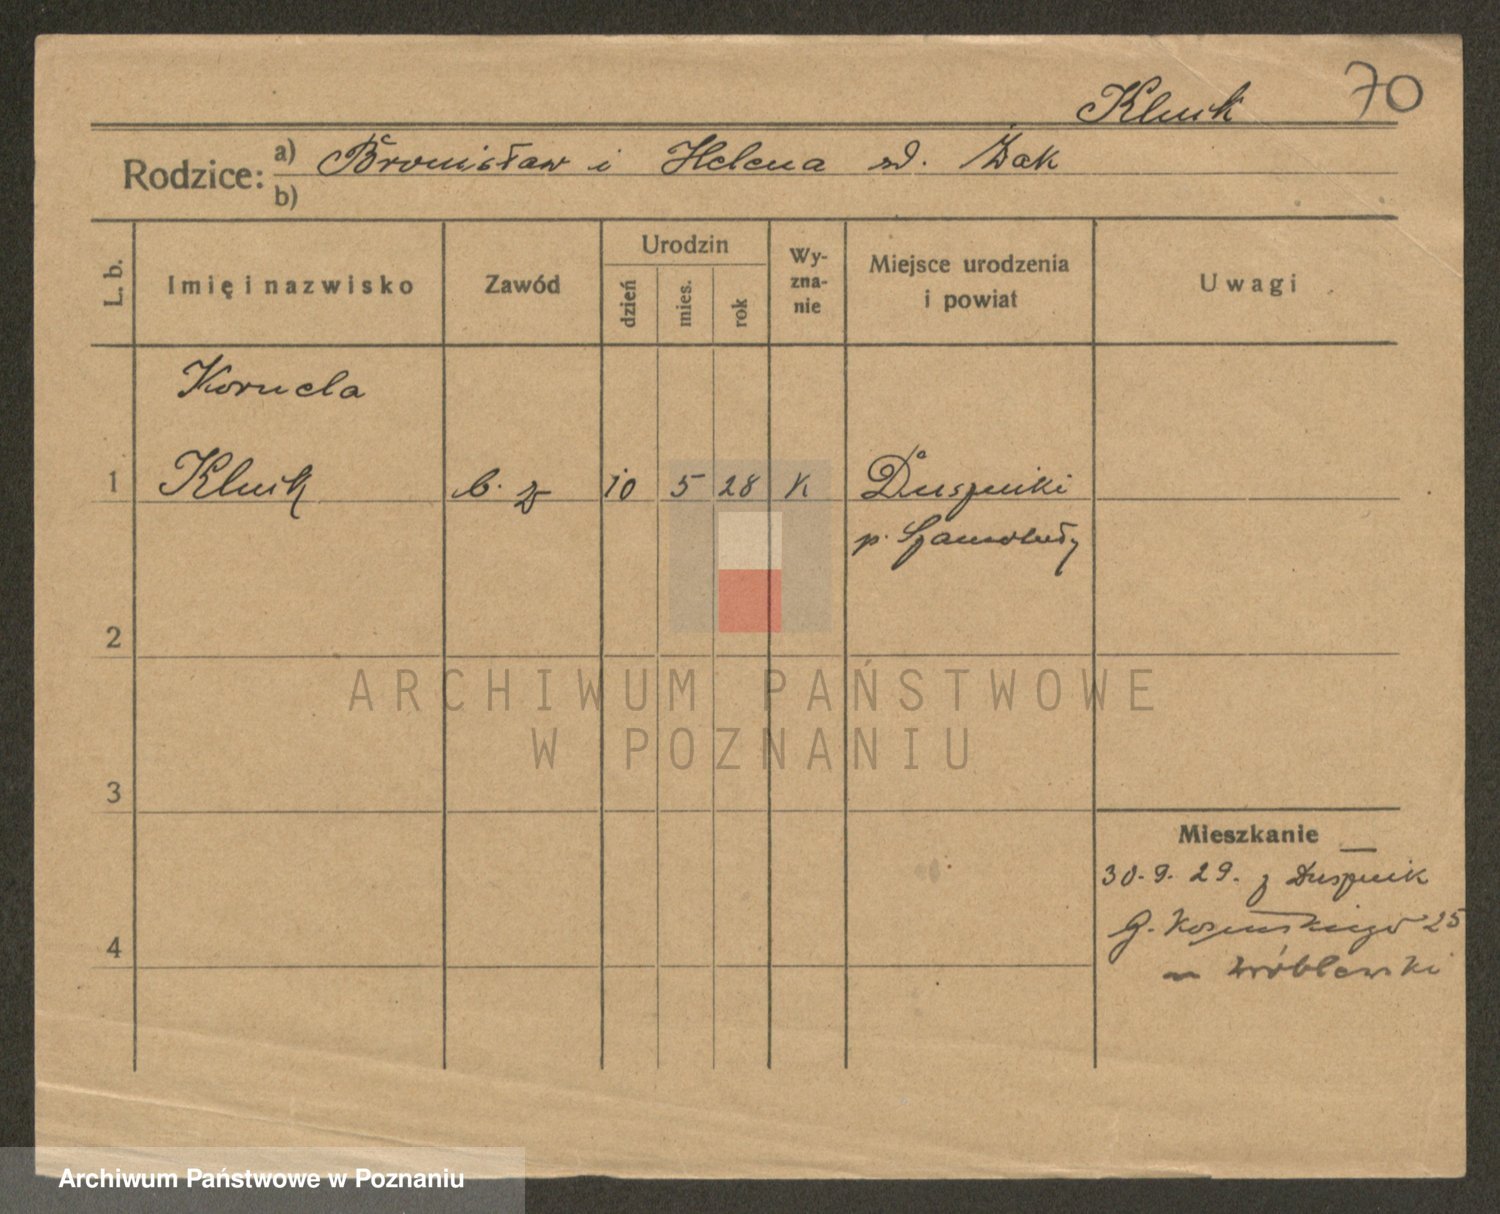 70
Kluik
Rodzice: a) Bronisław i Helena zd. Żak
b)
L. b.
Imię i nazwisko
Zawód
Urodzin
dzień
mies.
rok
Wy-
zna-
nie
Miejsce urodzenia
i powiat
Uwagi
Kornela
1 Kluik b. z 10 5 28 K Duszniki
p. Szamotuły
2
3
4
Mieszkanie
30. 9. 29. z Dusznik
G. Kosinskiego 25
Wróblewski
ARCHIWUM PAŃSTWOWE
W POZNANIU
Archiwum Państwowe w Poznaniu